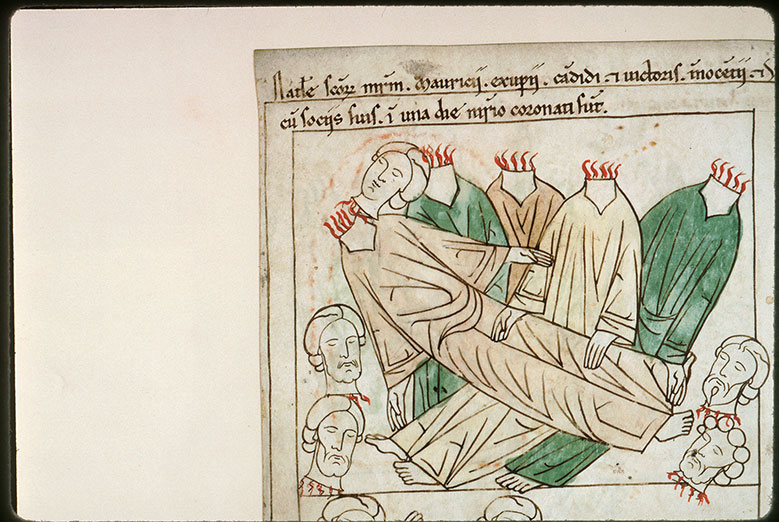 Natłe scōꝝ mr̄m. Mauricii. exuperii. cādidi ⁊ uictoris. īnocētii. ⁊
cū sociis suis. ī una die mr̄io coronati sūt.